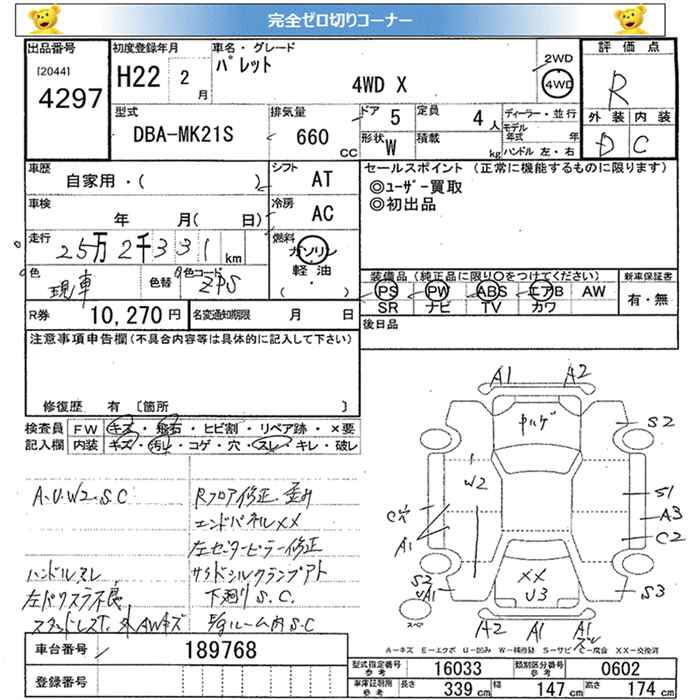 完全ゼロ切りコーナー
出品番号 初度登録年月 車名・グレード 評価点
[2044]
4297 H22 2月 パレット 4WD X 2WD 4WD R
型式 DBA-MK21S 排気量 660 CC ドア 5 定員 4人 ディーラー・並行 外装 内装
形状 W 積載 kg モデル年式 年 ハンドル 左・右 D C
車歴 自家用・( ) シフト AT セールスポイント (正常に機能するものに限ります)
◎ユーザー買取
◎初出品
車検 年 月( 日) 冷房 AC
走行 25万2千331km 燃料 ガソリン 軽油 ( ・ )
色 現車 色替 色コード ZPS
装備品(純正品に限り○をつけてください) 新車保証書
PS PW ABS エアB AW 有・無
SR ナビ TV カワ
R券 10,270 円 名変通知期限 月 日 後日品
注意事項申告欄(不具合内容等は具体的に記入して下さい)
修復歴 有 [箇所 ]
検査員 FW キズ・飛石・ヒビ割・リペア跡・×要
記入欄 内装 キズ・汚レ・コゲ・穴・スレ・キレ・破レ
A.U.W2.S.C Rフロア修正.歪み
エンドパネルXX
左センターピラー修正
ハンドルスレ サイドシルクランプアト
下廻りS.C.
スタッドレスT. 外AWキズ E/gルーム内S.C
A1 A2
S2
W2
S1
A3
C2
A1
S2
A1
XX
U3
S3
A2 A1 A1
A-キズ E-エクボ U-凹み W-補修跡 S-サビ C-腐食 XX-交換済
車台番号 189768
登録番号
型式指定番号 参考 16033 類別区分番号 参考 0602
車庫証明用 参考 長さ 339 cm 幅 147 cm 高さ 174 cm